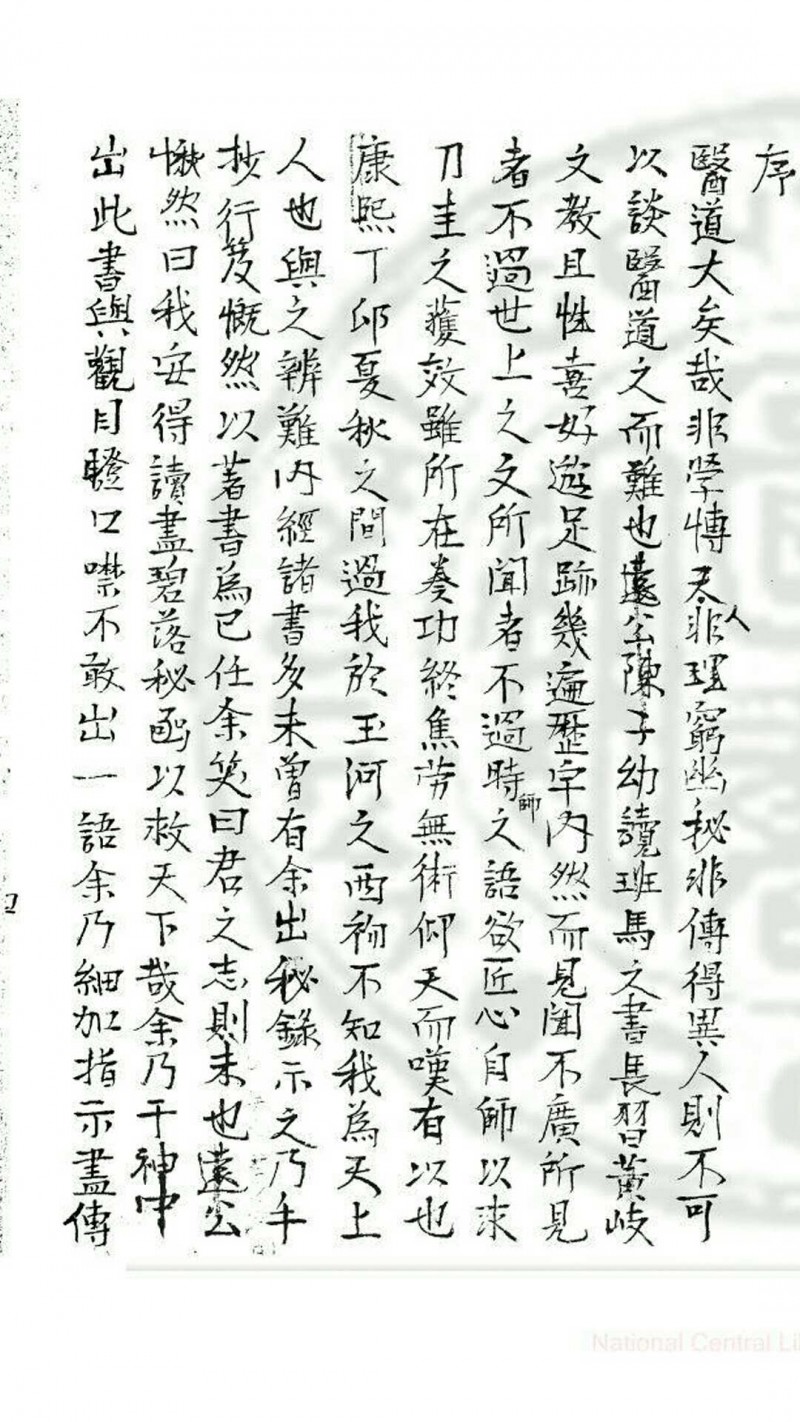 序
醫道大矣哉非學博天人非理窮幽秘非傳得異人則不可
以談醫道之而難也遠公陳子幼讀班馬之書長習黃岐
文教且性喜好遊足跡幾遍歷宇內然而見聞不廣所見
者不過世上之文所聞者不過時師之語欲匠心自師以求
刀圭之獲效雖所在奏功終焦勞無術仰天而嘆有以也
康熙丁卯夏秋之間過我於玉河之西初不知我為天上
人也與之辨難內經諸書多未曾有余出秘錄示之乃手
抄行笈慨然以著書為已任余笑曰君之志則未也遠公
愀然曰我安得讀盡碧落秘函以救天下哉余乃于神中
出此書與觀目瞪口噤不敢出一語余乃細加指示盡傳
National Central Li